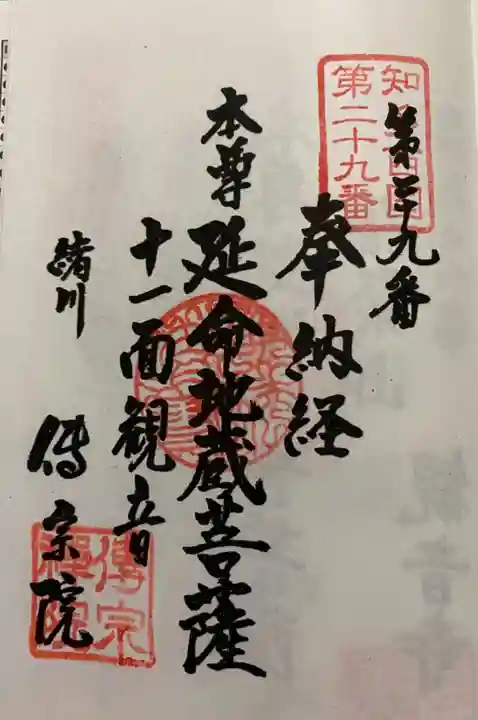 知多四国
第二十九番
第二十九番
奉納経
本尊 延命地蔵菩薩
十一面観音
緒川 傳宗院
傳宗
禅院